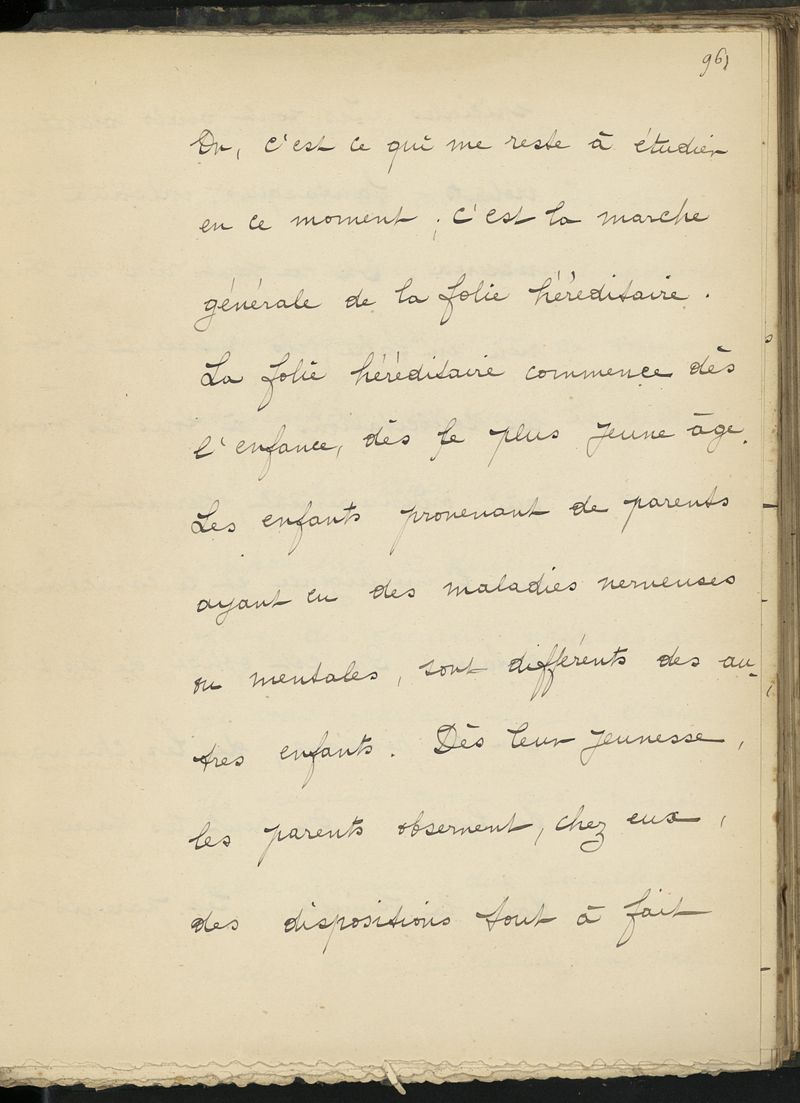 961
Or, c'est ce qui me reste à étudier
en ce moment ; c'est la marche
générale de la folie héréditaire.
La folie héréditaire commence dès
l'enfance, dès le plus jeune âge.
Les enfants provenant de parents
ayant eu des maladies nerveuses
ou mentales, sont différents des au-
tres enfants. Dès leur jeunesse,
les parents observent, chez eux,
des dispositions tout à fait